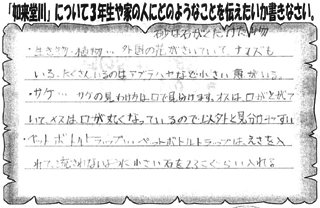 「如来堂川」について3年生や家の人にどのようなことを伝えたいか書きなさい。
砂は石がくだけた物
・生きもの 植物… 外国の花がさいていて、ナマズも
いる。たくさんいるのはアブラハヤなど小さい魚がいる。
・サケ… サケの見わけ方は口で見分けます。オスは、口が
いて、メスは口が丸くなっているので以外と見分けやすい
・ペットボトルトラップ… ペットボトルトラップは、えさを入
れて、流されないように小さい石を2、3こぐらい入れる。